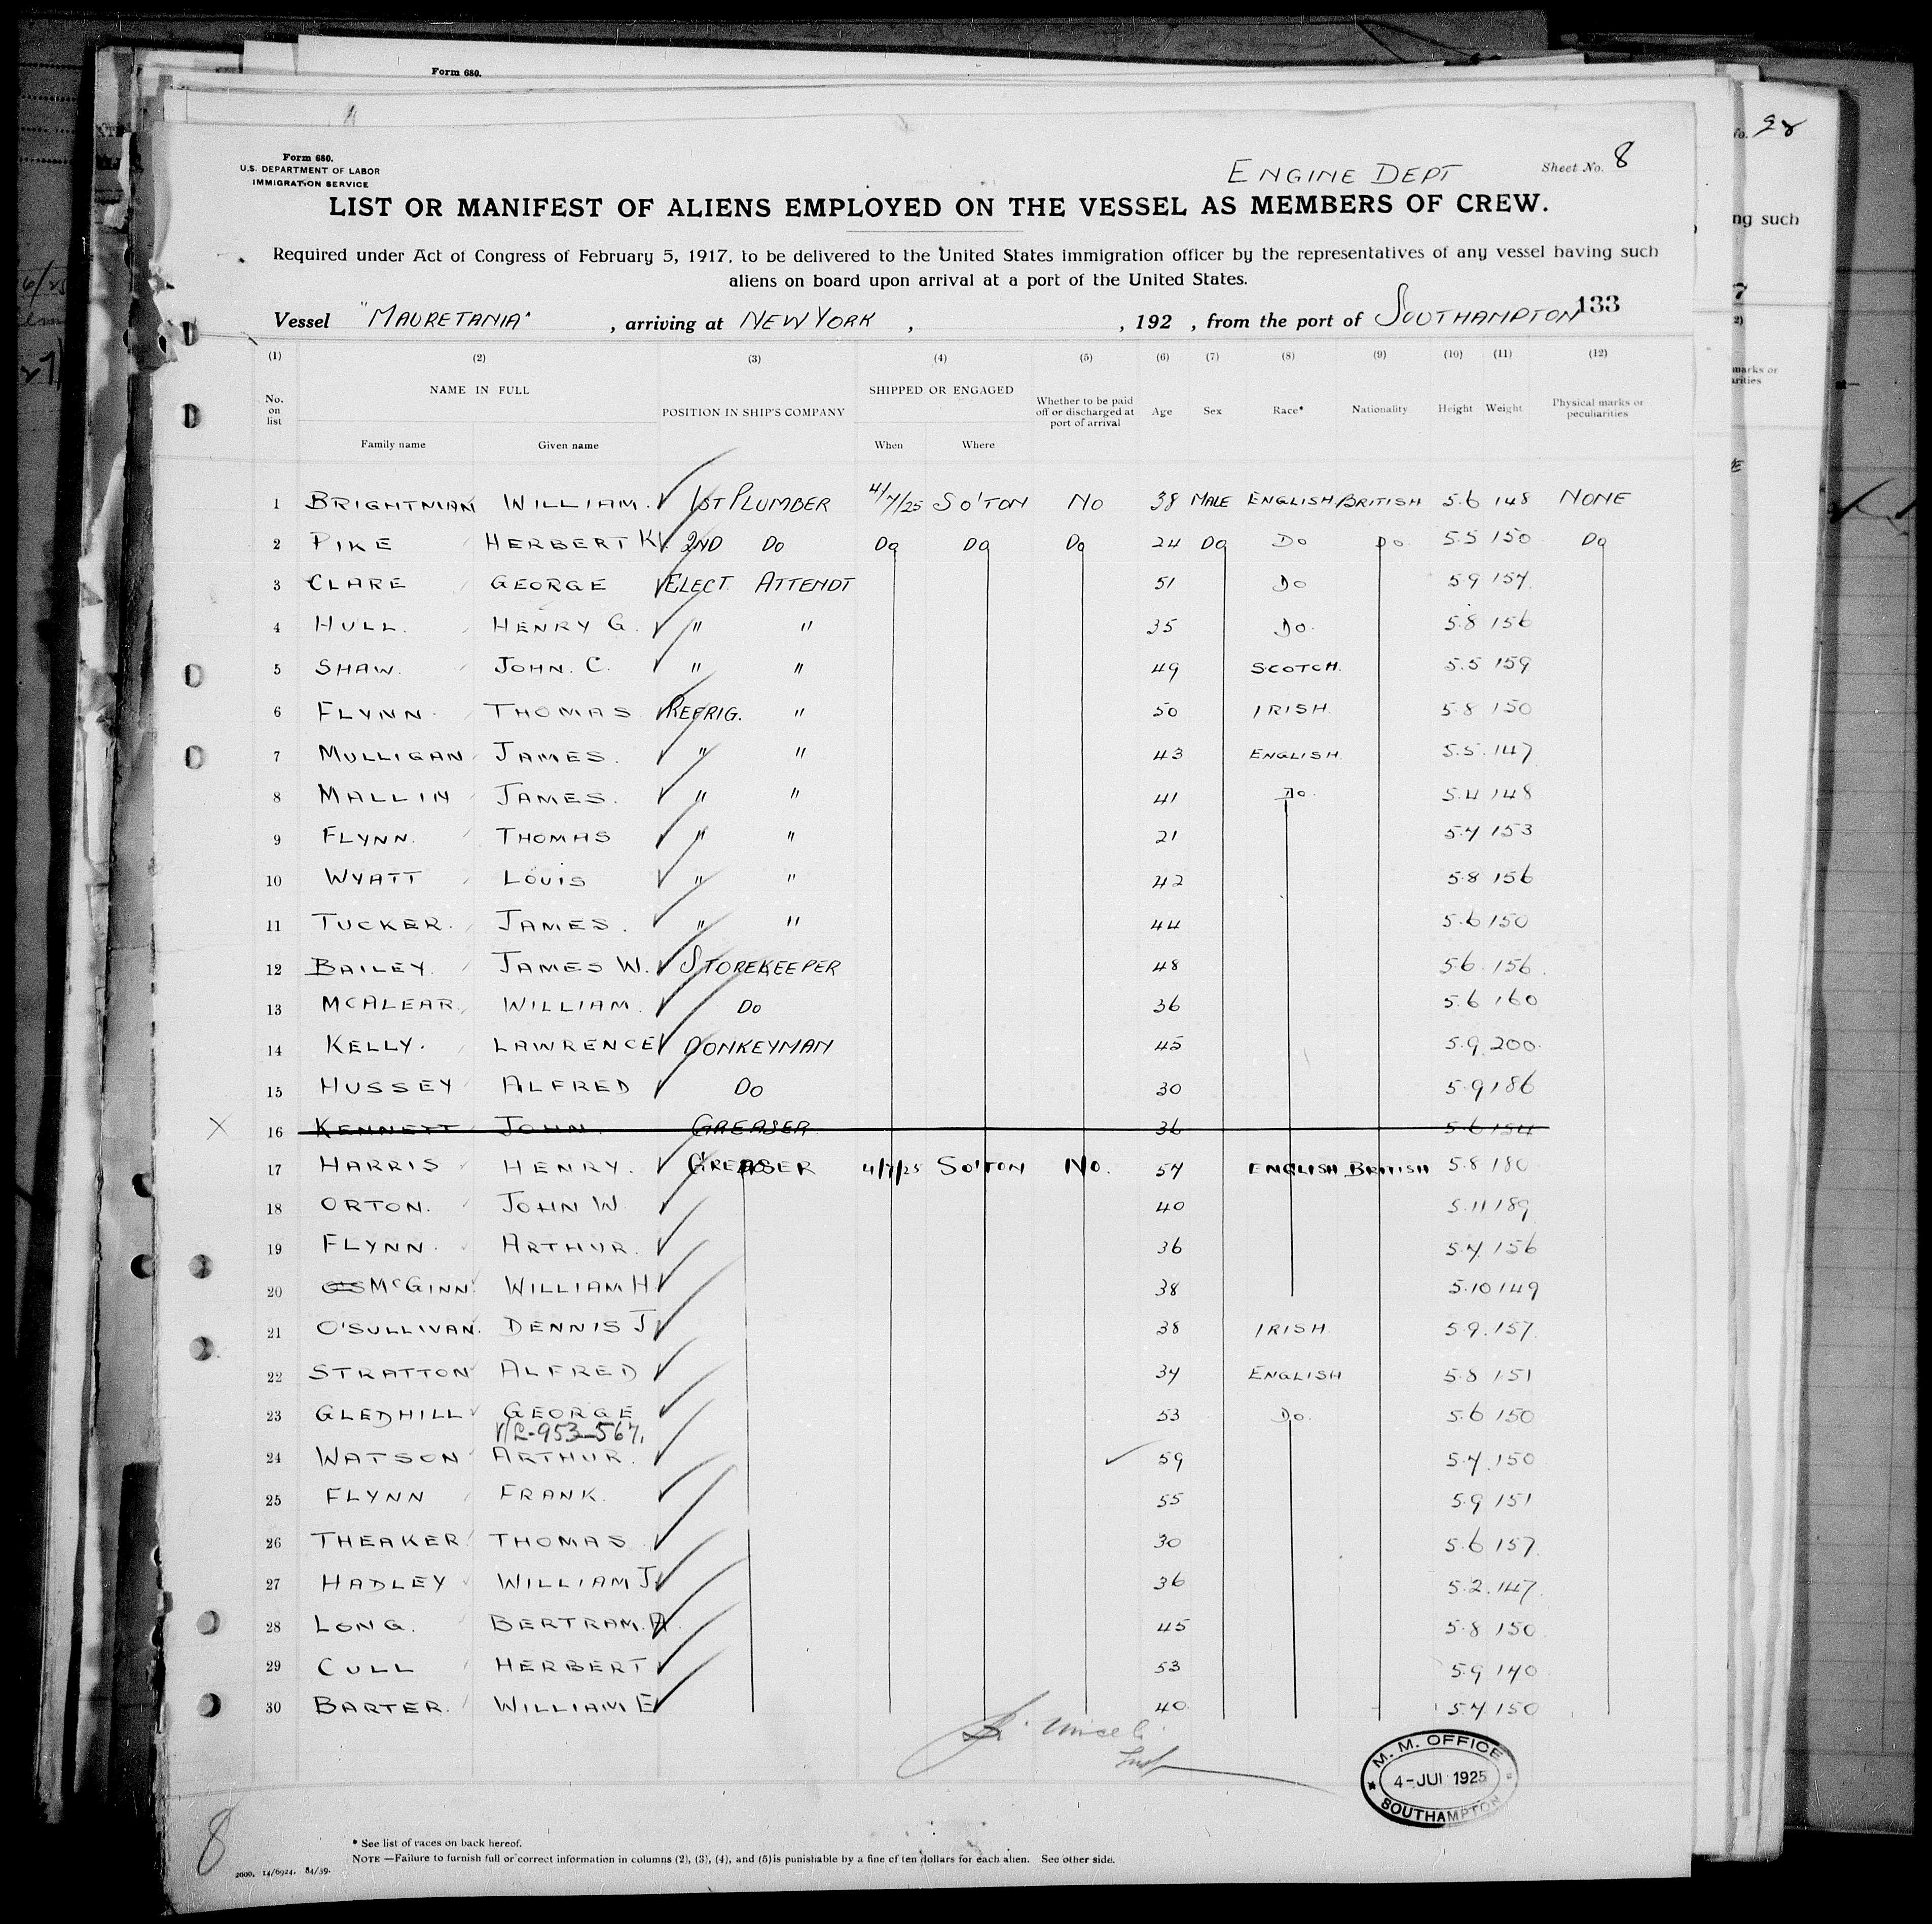 Form 680.
No. 98
Form 680.
U.S. DEPARTMENT OF LABOR
IMMIGRATION SERVICE
ENGINE DEPT
Sheet No. 8
LIST OR MANIFEST OF ALIENS EMPLOYED ON THE VESSEL AS MEMBERS OF CREW.
ng such
Required under Act of Congress of February 5, 1917, to be delivered to the United States immigration officer by the representatives of any vessel having such
aliens on board upon arrival at a port of the United States.
133
Vessel "MAURETANIA" , arriving at NEW YORK , , 192 , from the port of SOUTHAMPTON
(1) (2) (3) (4) (5) (6) (7) (8) (9) (10) (11) (12)
No. on list NAME IN FULL POSITION IN SHIP'S COMPANY SHIPPED OR ENGAGED Whether to be paid off or discharged at port of arrival Age Sex Race* Nationality Height Weight Physical marks or peculiarities
Family name Given name When Where
1 BRIGHTMAN WILLIAM. 1ST PLUMBER 4/7/25 SO'TON NO 38 MALE ENGLISH BRITISH 5.6 148 NONE
2 PIKE HERBERT K. 2ND DO DO DO DO 24 DO DO DO 5.5 150 DO
3 CLARE GEORGE ELECT ATTENDT 51 DO 5.9 157
4 HULL. HENRY G. " " 35 DO. 5.8 156
5 SHAW. JOHN. C. " " 49 SCOTCH. 5.5 159
6 FLYNN. THOMAS REFRIG. " 50 IRISH. 5.8 150
7 MULLIGAN JAMES. " " 43 ENGLISH 5.5. 147
8 MALLIN JAMES. " " 41 DO. 5.4 148
9 FLYNN. THOMAS " " 21 5.7 153
10 WYATT LOUIS " " 42 5.8 156
11 TUCKER. JAMES. " " 44 5.6 150
12 BAILEY. JAMES W. STOREKEEPER 48 5.6 156.
13 MCALEAR WILLIAM. DO 36 5.6 160
14 KELLY. LAWRENCE DONKEYMAN 45 5.9 200.
15 HUSSEY ALFRED DO 30 5.9 186
X 16 KENNETT JOHN. GREASER 36 5.6 154
17 HARRIS HENRY. GREASER 4/7/25 SO'TON NO. 57 ENGLISH BRITISH 5.8 180
18 ORTON. JOHN W 40 5.11 189
19 FLYNN. ARTHUR. 36 5.7 156
20 MCGINN WILLIAM H. 38 5.10 149
21 O'SULLIVAN. DENNIS J 38 IRISH 5.9. 157
22 STRATTON ALFRED 34 ENGLISH 5.8 151
23 GLEDHILL GEORGE 53 DO. 5.6 150
V/L-953-567.
24 WATSON ARTHUR. 59 5.7. 150
25 FLYNN FRANK. 55 5.9 151
26 THEAKER THOMAS 30 5.6 157
27 HADLEY WILLIAM J. 36 5.2. 147
28 LONG. BERTRAM. A. 45 5.8 150
29 CULL HERBERT 53 5.9 140
30 BARTER. WILLIAM E 40 5.7. 150
Insp
M. M. OFFICE
4-JUL 1925
SOUTHAMPTON
8
* See list of races on back hereof.
NOTE —Failure to furnish full or correct information in columns (2), (3), (4), and (5) is punishable by a fine of ten dollars for each alien. See other side.
2000. 14/6924. 84/39.